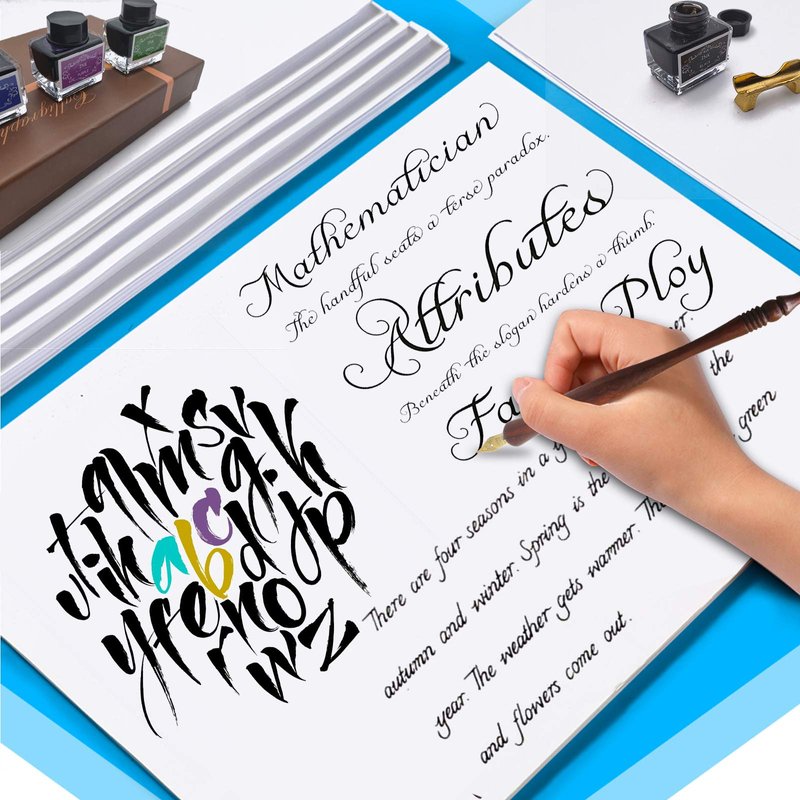 Mathematician
The handful seats a terse paradox.
Attributes
Beneath the slogan hardens a thumb.
Ploy
Fa
x s v
q l m g. h
t i k a b c d j p
y f e n o
r w z
There are four seasons in a
autumn and winter. Spring is the the
year. The weather gets warmer. green
and flowers come out.